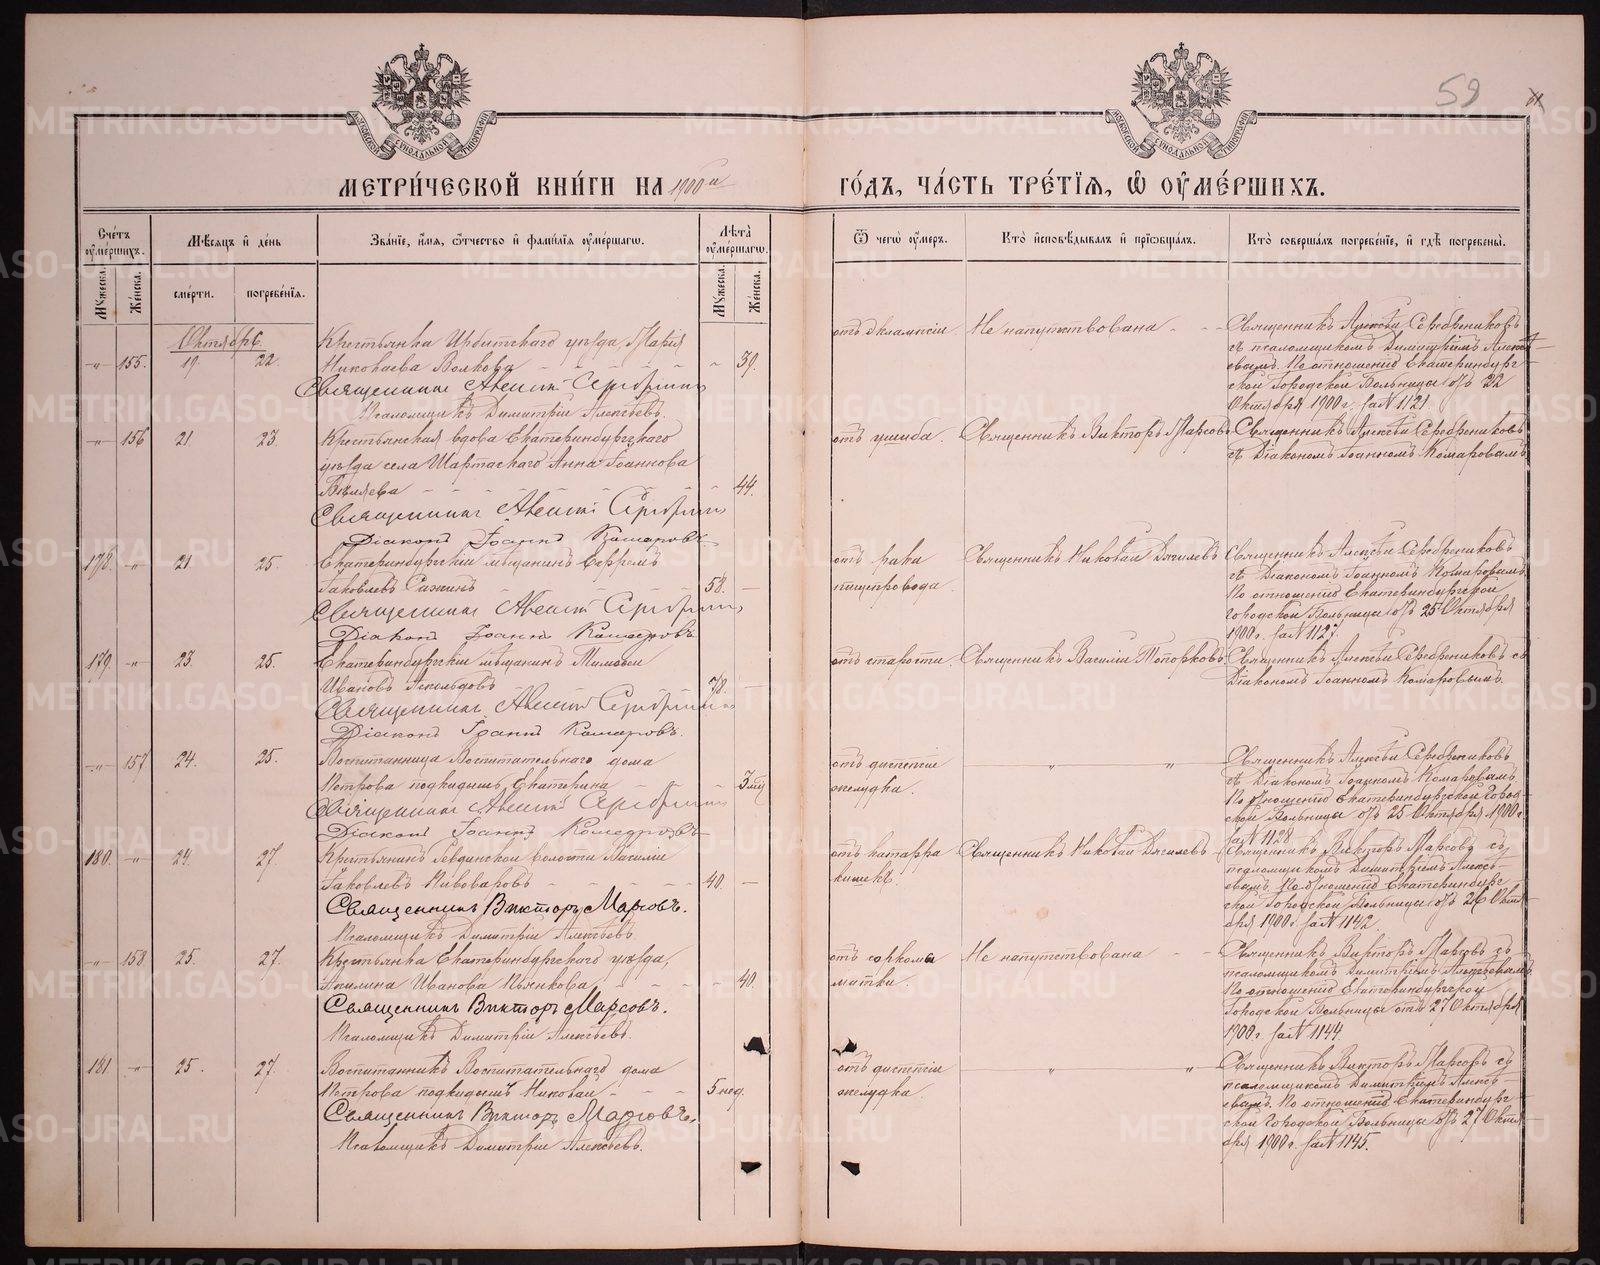 59
МЕТРИ́ЧЕСКОЙ КНИ́ГИ НА 1900й
ГО́ДЪ, ЧА́СТЬ ТРЕ́ТІѦ, Ѽ ОУМЕ́РШИХЪ.
Сче́тъ оуме́ршихъ.
Мѣ́сѧцъ и҆ де́нь
Зва́нїе, и҆́мѧ, ѻ҆́тчество и҆ фами́лїѧ оуме́ршагѡ.
Лѣ́та оуме́ршагѡ.
Ѿ чегѡ̀ оу́меръ.
Кто̀ и҆сповѣ́дывалъ и҆ прїѡбща́лъ.
Кто̀ соверша́лъ погребе́нїе, и҆ гдѣ̀ погребены̀.
Мꙋ́жеска.
Же́нска.
сме́рти.
погребе́нїѧ.
Мꙋ́жеска.
Же́нска.
Октябрь.
-"- 155. 19. 22.
Крестьянка Ирбитскаго уѣзда, Марія
Николаева Волкова - - - - - 39.
Священникъ Алексій Серебрениковъ
Псаломщикъ Димитрій Алексѣевъ.
отъ эклампсіи
Не напутствована - -
Священникъ Алексѣй Серебрениковъ
съ псаломщикомъ Димитріемъ Алексѣ-
евымъ. По отношенію Екатеринбург-
ской Городской Больницы отъ 22
Октября 1900 г. за N 1121.
-"- 156 21. 23.
Крестьянская вдова Екатеринбургскаго
уѣзда села Шарташскаго Анна Іоаннова
Бѣляева - - - - 44.
Священникъ Алексій Серебрениковъ
Діаконъ Іоаннъ Комаровъ
отъ ушиба.
Священникъ Викторъ Марсовъ
Священникъ Алексѣй Серебрениковъ
съ Діакономъ Іоанномъ Комаровымъ.
178. -"- 21 25.
Екатеринбургскій мѣщанинъ
Іаковлевъ 58. -
Священникъ Алексій Серебрениковъ
Діаконъ Іоаннъ Комаровъ
отъ рака
пищепровода.
Священникъ Николай Дягилевъ
Священникъ Алексѣй Серебрениковъ
съ Діакономъ Іоанномъ Комаровымъ.
По отношенію Екатеринбургской
Городской Больницы отъ 25 Октября
1900 г. за N 1127.
179. -"- 23. 25.
Екатеринбургскій мѣщанинъ Тимоѳей
Ивановъ 78. -
Священникъ Алексій Серебрениковъ
Діаконъ Іоаннъ Комаровъ.
отъ старости.
Священникъ Василій Топорковъ.
Священникъ Алексѣй Серебрениковъ съ
Діакономъ Іоанномъ Комаровымъ.
-"- 157 24. 25.
Воспитанница Воспитательнаго дома
Петрова подкидышъ Екатерина - - 3 мѣс
Священникъ Алексій Серебрениковъ
Діаконъ Іоаннъ Комаровъ
отъ диспепсіи
желудка.
" "
Священникъ Алексѣй Серебрениковъ
съ Діакономъ Іоанномъ Комаровымъ.
По отношенію Екатеринбургской Город-
ской Больницы отъ 25 Октября 1900 г.
за N 1128
180. -"- 24. 27.
Крестьянинъ Ревдинской волости Василій
Іаковлевъ Пивоваровъ - - - - 40. -
Священникъ Викторъ Марсовъ.
Псаломщикъ Димитрій Алексѣевъ.
отъ катарра
кишекъ.
Священникъ Николай Дягилевъ
Священникъ Викторъ Марсовъ съ
псаломщикомъ Димитріемъ Алексѣ-
евымъ. По отношенію Екатеринбург-
ской Городской Больницы отъ 26 Октя-
бря 1900 г. за N 1142.
-"- 158 25. 27.
Крестьянка Екатеринбургскаго уѣзда,
Акилина Иванова Пьянкова - - - - 40.
Священникъ Викторъ Марсовъ.
Псаломщикъ Димитрій Алексѣевъ.
отъ саркомы
матки.
Не напутствована - -
Священникъ Викторъ Марсовъ съ
псаломщикомъ Димитріемъ Алексѣевымъ.
По отношенію Екатеринбургской
Городской Больницы отъ 27 Октября
1900 г. за N 1144.
181. -"- 25. 27.
Воспитанникъ Воспитательнаго дома
Петрова подкидышъ Николай - - - 5 нед.
Священникъ Викторъ Марсовъ.
Псаломщикъ Димитрій Алексѣевъ.
отъ диспепсіи
желудка.
" "
Священникъ Викторъ Марсовъ съ
псаломщикомъ Димитріемъ Алексѣ-
евымъ. По отношенію Екатеринбург-
ской Городской Больницы отъ 27 Октя-
бря 1900 г. за N 1145.
METRIKI.GASO-URAL.RU